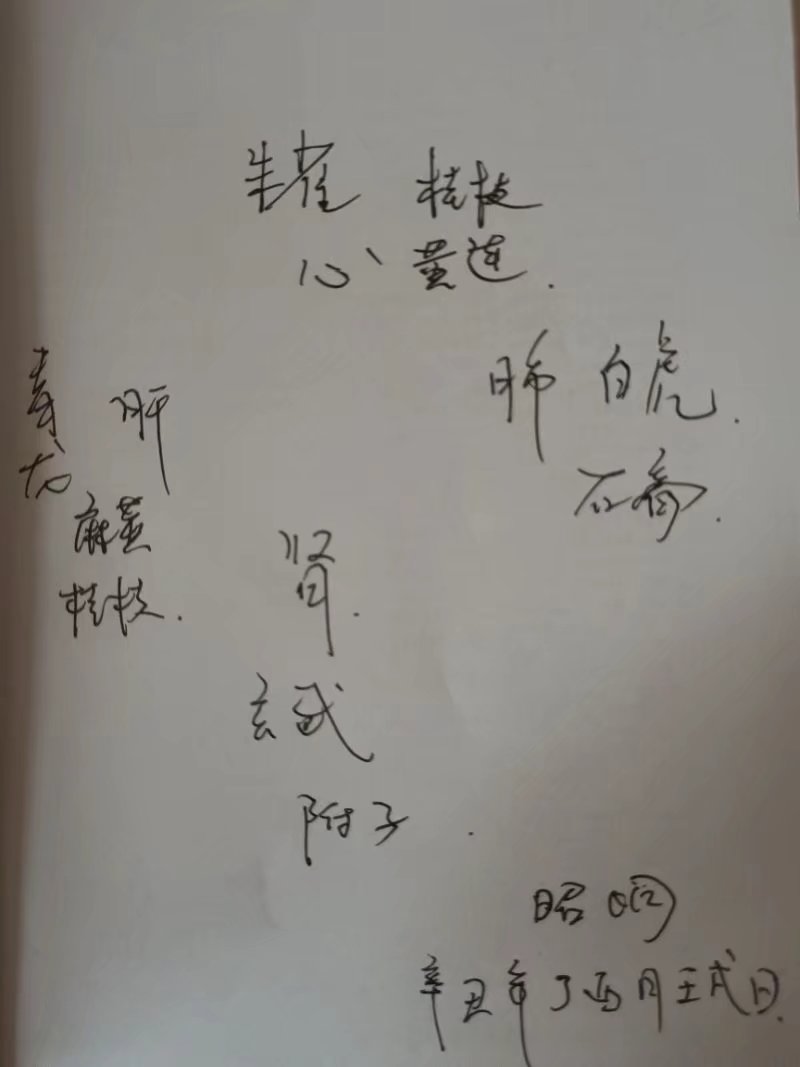 朱雀 桂枝
心 黄连.
肺 白虎.
石膏.
青龙 肝
麻黄
桂枝.
肾.
玄武
附子.
昭
辛丑年丁酉月壬戌日.